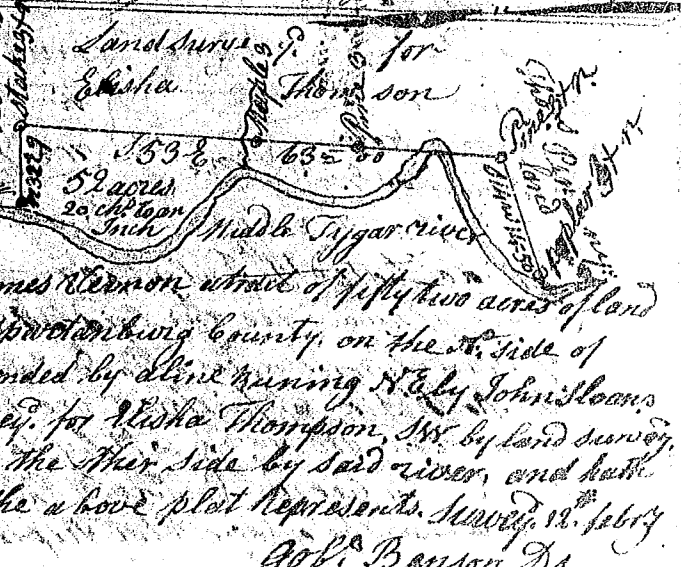 Land survey'd for
Elisha Thompson
Stake 3x
Maple 3
Pine 3
S 53 E 63=50
N 32 E 9
52 acres
20 chs. to an
Inch
Middle Tygar river
Pine 3x n.
land
Poplar 3x n.
mes Vernon a tract of fifty two acres of land
Spartanburg County. on the N. side of
onded by a line runing N.E by John Sloans
ey'd. for Elisha Thompson, SW by land survey,
the other side by said river, and hath
he above plat represents. Survey'd. 12th. febry
Benson Ds